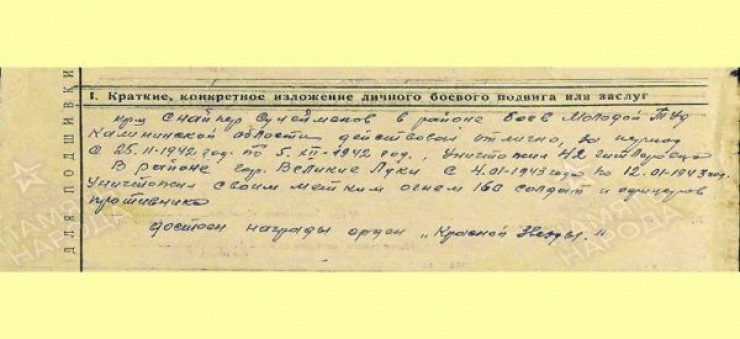 ДЛЯ ПОДШИВКИ
I. Краткие, конкретное изложение личного боевого подвига или заслуг
Снайпер Сулейменов в районе боев Молодой Туд
Калининской области действовал отлично, за период
с 25.11-1942 год. по 5.XII-1942 год., Уничтожил 42 гитлеровца
В районе гор. Великие Луки с 4.01-1943 года по 12.01-1943 год.
Уничтожил своим метким огнем 160 солдат и офицеров
противника
Достоен награды орден „Красной Звезды."
ПАМЯТЬ НАРОДА
ПАМЯТЬ НАРОДА